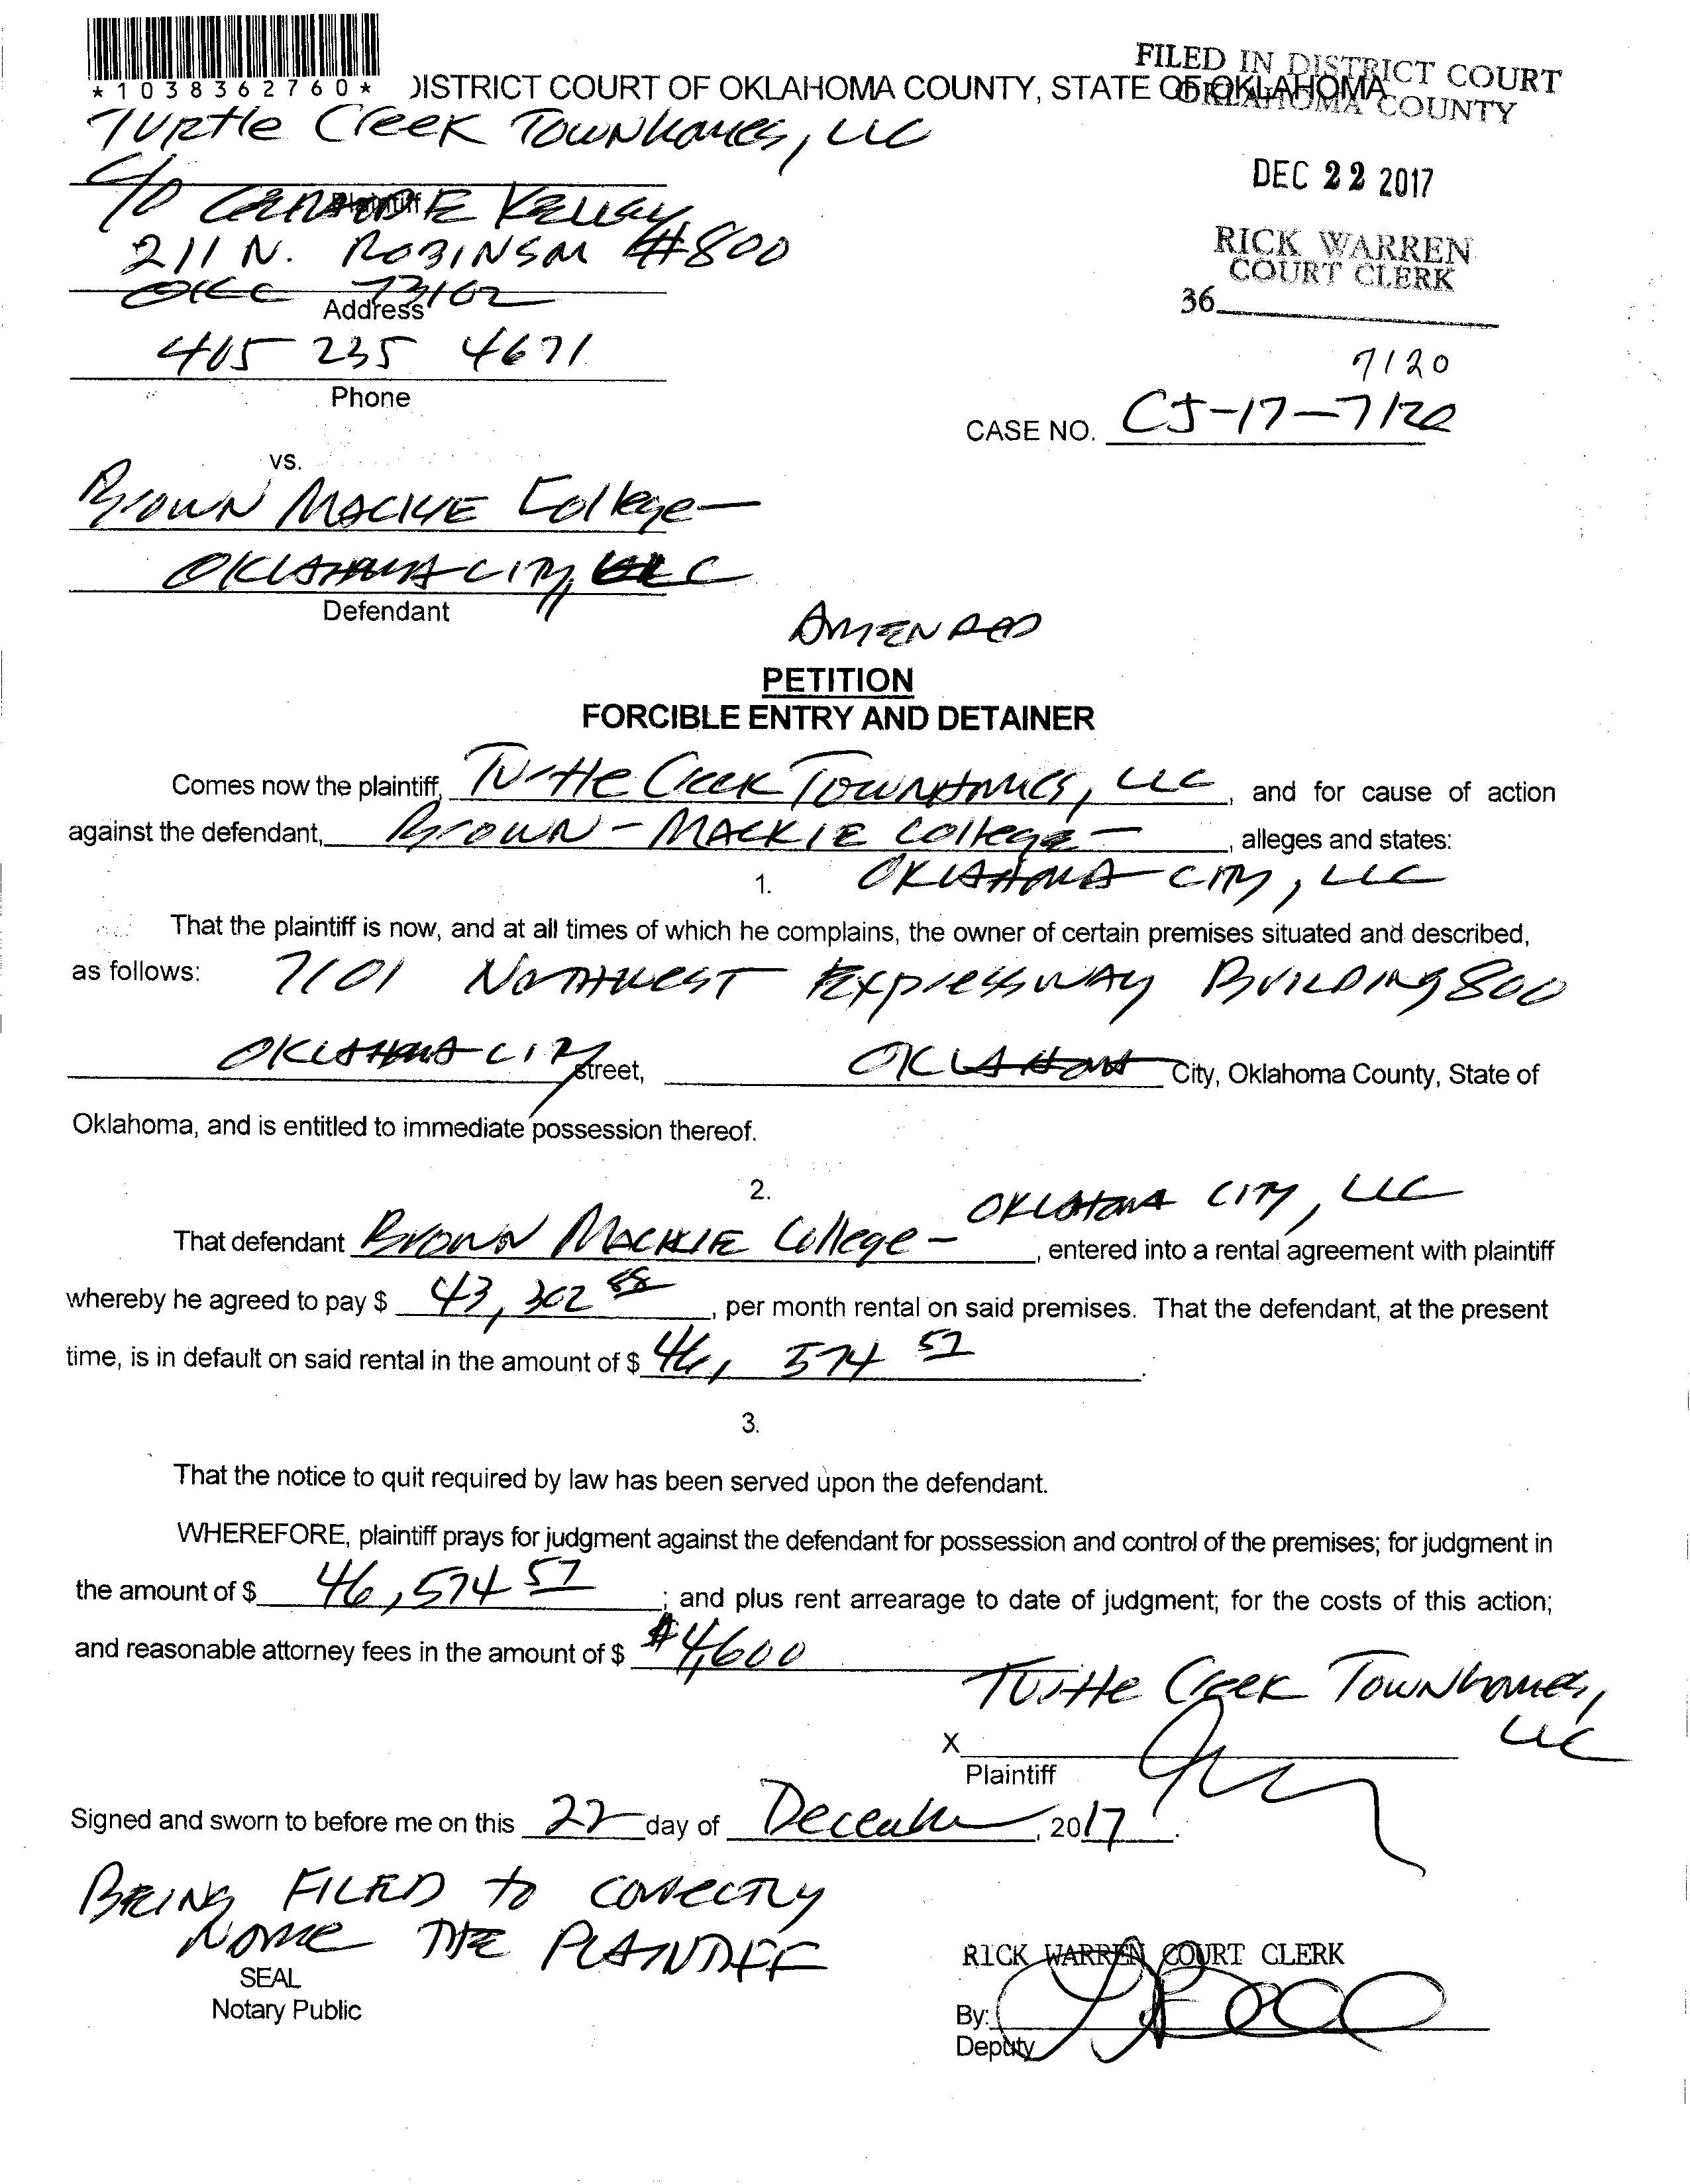 *1038362760*
DISTRICT COURT OF OKLAHOMA COUNTY, STATE OF OKLAHOMA
FILED IN DISTRICT COURT
OKLAHOMA COUNTY
DEC 22 2017
RICK WARREN
COURT CLERK
36
Turtle Creek Townhomes, LLC
Plaintiff
c/o Kelley
211 N. Robinson #800
OKC 73102
Address
405 235 4671
Phone
7120
CASE NO. CJ-17-7120
vs.
Brown Mackie College-
Oklahoma City, LLC
Defendant
Amended
PETITION
FORCIBLE ENTRY AND DETAINER
Comes now the plaintiff, Turtle Creek Townhomes, LLC, and for cause of action
against the defendant, Brown-Mackie College-, alleges and states:
Oklahoma City, LLC
1.
That the plaintiff is now, and at all times of which he complains, the owner of certain premises situated and described,
as follows: 7101 Northwest Expressway Building 800
Oklahoma City street, Oklahoma City, Oklahoma County, State of
Oklahoma, and is entitled to immediate possession thereof.
2.
Oklahoma City, LLC
That defendant Brown Mackie College-, entered into a rental agreement with plaintiff
whereby he agreed to pay $ 43,302 88, per month rental on said premises. That the defendant, at the present
time, is in default on said rental in the amount of $ 46, 574 57.
3.
That the notice to quit required by law has been served upon the defendant.
WHEREFORE, plaintiff prays for judgment against the defendant for possession and control of the premises; for judgment in
the amount of $ 46,574 57; and plus rent arrearage to date of judgment; for the costs of this action;
and reasonable attorney fees in the amount of $ $4,600
Turtle Creek Townhomes,
LLC
X
Plaintiff
Signed and sworn to before me on this 22 day of December, 2017.
Being Filed to correctly
Name the Plaintiff
SEAL
Notary Public
RICK WARREN COURT CLERK
By:
Deputy